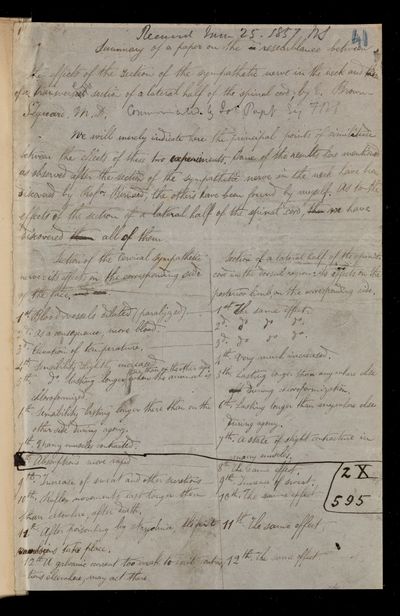 Received June 25. 1857, RS
41
Summary of a paper on the resemblance between
the effects of the section of the sympathetic nerve in the neck and
of a transversal section of a lateral half of the spinal cord, by E. Brown-
Séquard, M.D.,
We will merely indicate here the principal points of similitude
between the effects of these two experiments. Some of the results here mentioned
as observed after the section of the sympathetic nerve in the neck have been
discovered by Profr Bernard, the others have been found by myself. As to the
effects of the section of a lateral half of the spinal cord, have
discovered all of them
Section of the Cervical Sympathetic
nerve: its effects on the corresponding side
of the face.
1st Blood vessels dilated (paralyzed)
2d As a consequence, more blood
3d Elevation of temperature.
4th Sensibility slightly increased
5th do lasting longer than on the other side when the animal is
chloroformized
6th Sensibility lasting longer there than on the
other side during agony.
7th Many muscles contracted.
8th Absorption more rapid
9th Increase of sweat and other secretions
10th Reflex movements last longer there
than elsewhere, after death.
11th After poisoning by strychnia,
take place.
12th A galvanic current too weak to
tions elsewhere, may act there
Section of a lateral half of the spinal
cord in the dorsal region: its effects on the
posterior limb on the corresponding side.
1st The same effect.
2d do do do
3d do do do
4th Very much increased.
5th Lasting longer than anywhere else
during chloroformization
6th Lasting longer than anywhere else
during agony.
7th A state of slight contracture in
many muscles.
8th The same effect.
9th Increase of sweat.
10th The same effect
11th The same effect
12th The same effect
2 X
595